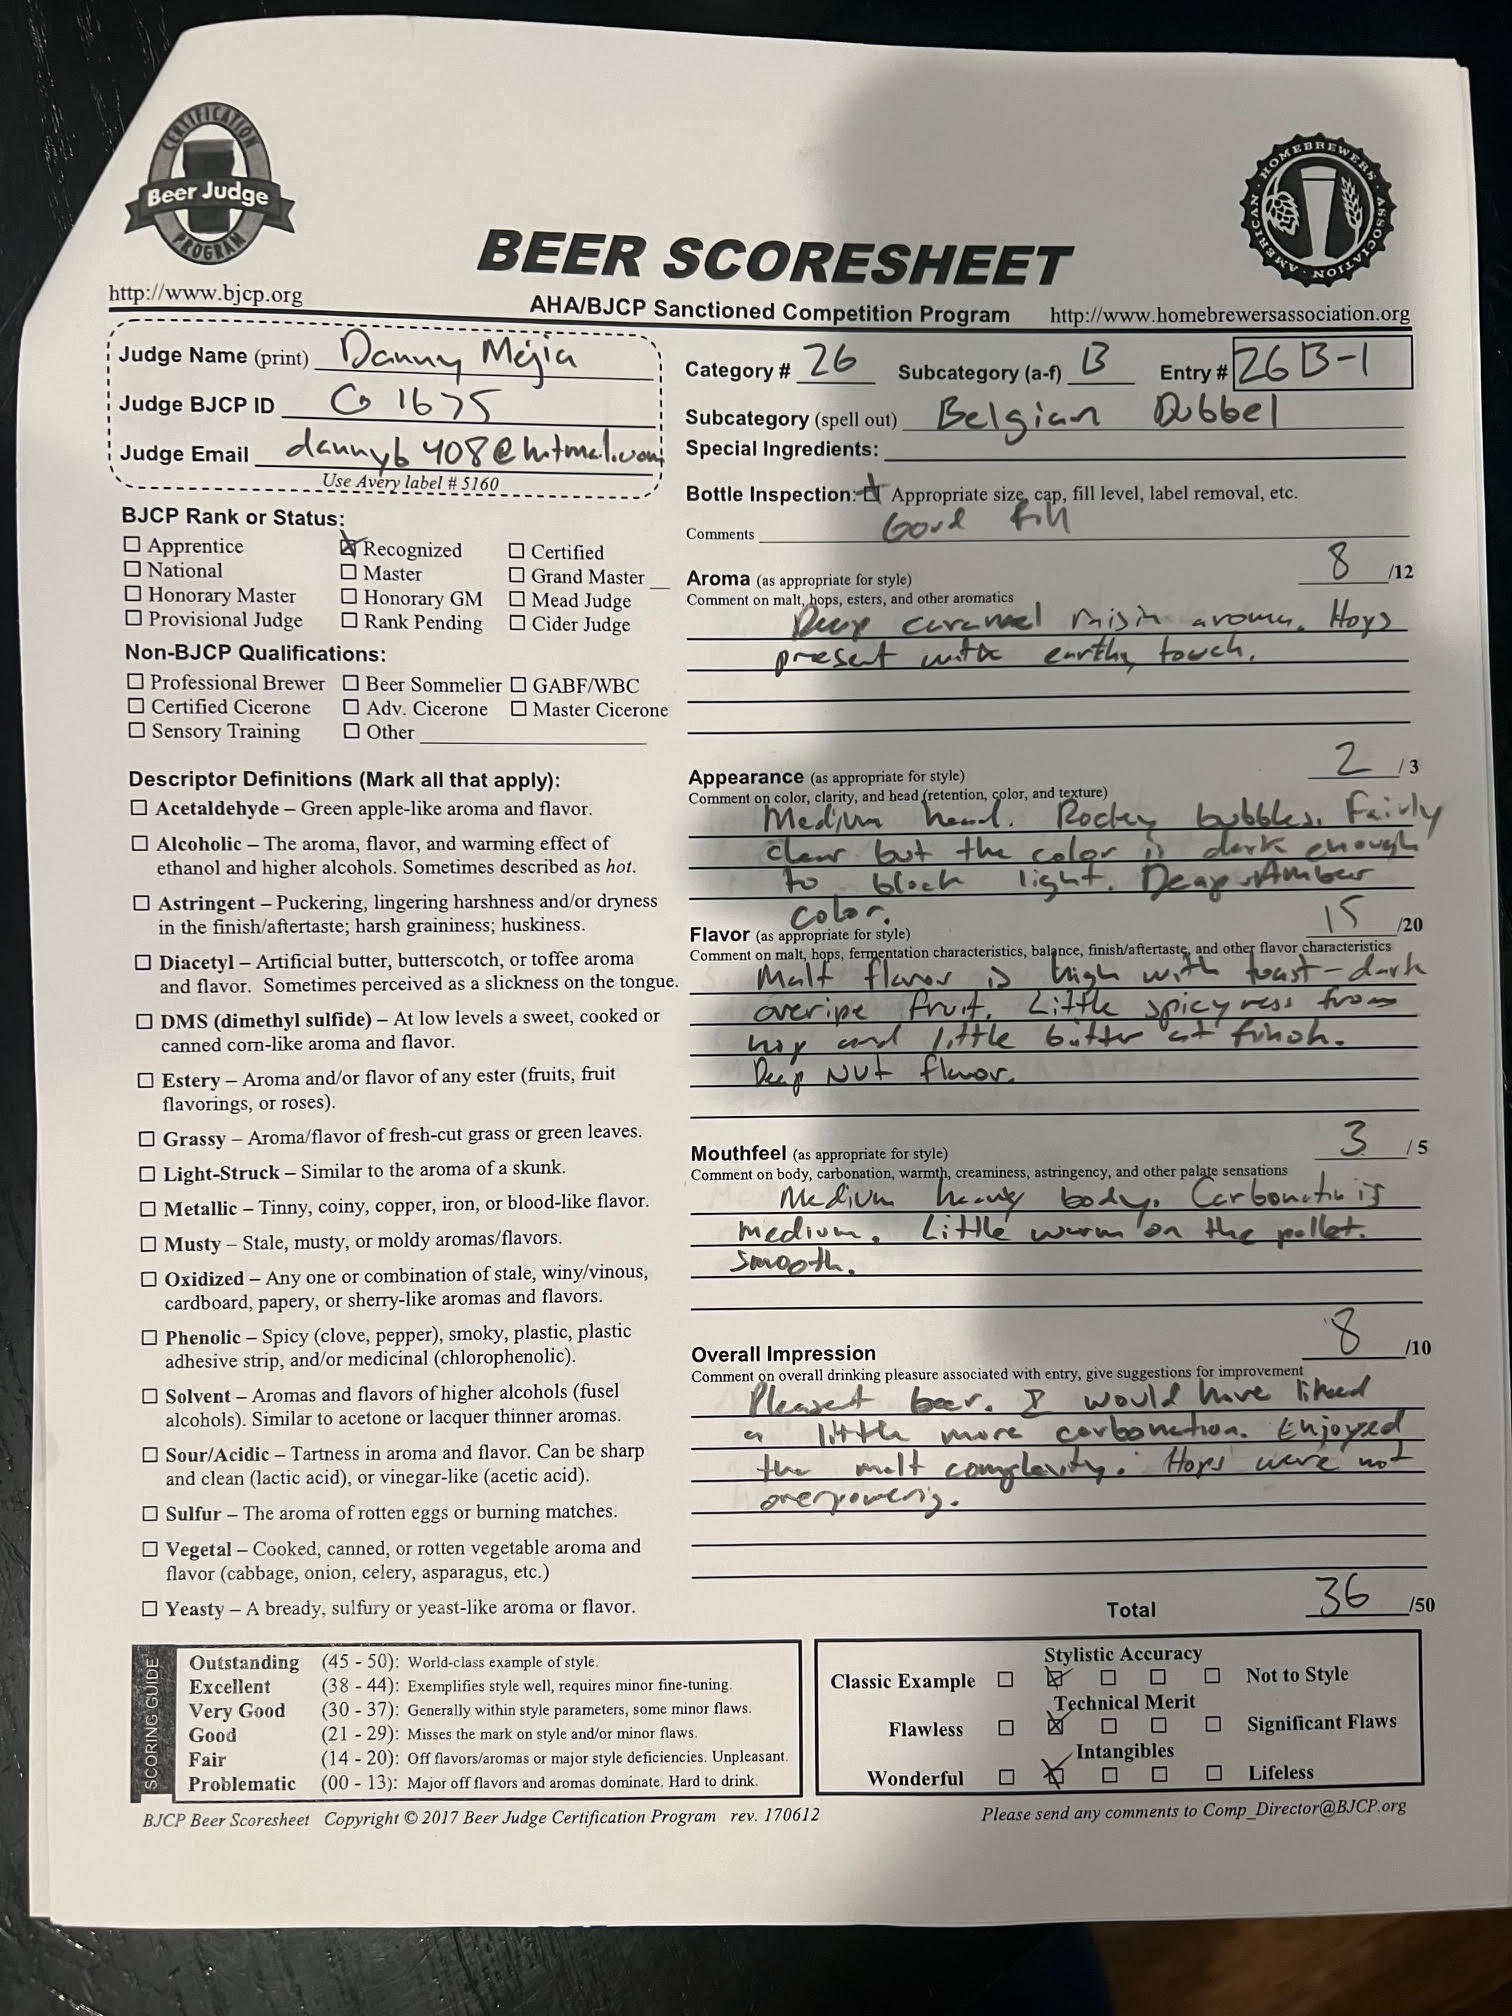 CERTIFICATION
Beer Judge
PROGRAM
AMERICAN · HOMEBREWERS · ASSOCIATION
BEER SCORESHEET
http://www.bjcp.org
AHA/BJCP Sanctioned Competition Program
http://www.homebrewersassociation.org
Judge Name (print) Danny Mejia
Judge BJCP ID G 1675
Judge Email dannyb408@hotmail.com
Use Avery label # 5160
BJCP Rank or Status:
☐ Apprentice ☒ Recognized ☐ Certified
☐ National ☐ Master ☐ Grand Master __
☐ Honorary Master ☐ Honorary GM ☐ Mead Judge
☐ Provisional Judge ☐ Rank Pending ☐ Cider Judge
Non-BJCP Qualifications:
☐ Professional Brewer ☐ Beer Sommelier ☐ GABF/WBC
☐ Certified Cicerone ☐ Adv. Cicerone ☐ Master Cicerone
☐ Sensory Training ☐ Other
Descriptor Definitions (Mark all that apply):
☐ Acetaldehyde – Green apple-like aroma and flavor.
☐ Alcoholic – The aroma, flavor, and warming effect of
ethanol and higher alcohols. Sometimes described as hot.
☐ Astringent – Puckering, lingering harshness and/or dryness
in the finish/aftertaste; harsh graininess; huskiness.
☐ Diacetyl – Artificial butter, butterscotch, or toffee aroma
and flavor. Sometimes perceived as a slickness on the tongue.
☐ DMS (dimethyl sulfide) – At low levels a sweet, cooked or
canned corn-like aroma and flavor.
☐ Estery – Aroma and/or flavor of any ester (fruits, fruit
flavorings, or roses).
☐ Grassy – Aroma/flavor of fresh-cut grass or green leaves.
☐ Light-Struck – Similar to the aroma of a skunk.
☐ Metallic – Tinny, coiny, copper, iron, or blood-like flavor.
☐ Musty – Stale, musty, or moldy aromas/flavors.
☐ Oxidized – Any one or combination of stale, winy/vinous,
cardboard, papery, or sherry-like aromas and flavors.
☐ Phenolic – Spicy (clove, pepper), smoky, plastic, plastic
adhesive strip, and/or medicinal (chlorophenolic).
☐ Solvent – Aromas and flavors of higher alcohols (fusel
alcohols). Similar to acetone or lacquer thinner aromas.
☐ Sour/Acidic – Tartness in aroma and flavor. Can be sharp
and clean (lactic acid), or vinegar-like (acetic acid).
☐ Sulfur – The aroma of rotten eggs or burning matches.
☐ Vegetal – Cooked, canned, or rotten vegetable aroma and
flavor (cabbage, onion, celery, asparagus, etc.)
☐ Yeasty – A bready, sulfury or yeast-like aroma or flavor.
Category # 26 Subcategory (a-f) B Entry # 26B-1
Subcategory (spell out) Belgian Dubbel
Special Ingredients:
Bottle Inspection: Appropriate size, cap, fill level, label removal, etc.
Comments Good fill
Aroma (as appropriate for style) 8 /12
Comment on malt, hops, esters, and other aromatics
Deep caramel raisin aroma. Hops
present with earthy touch.
Appearance (as appropriate for style) 2 /3
Comment on color, clarity, and head (retention, color, and texture)
Medium head. Rocky bubbles. Fairly
clear but the color is dark enough
to block light. Deap Amber
color.
Flavor (as appropriate for style) 15 /20
Comment on malt, hops, fermentation characteristics, balance, finish/aftertaste, and other flavor characteristics
Malt flavor is high with toast-dark
overipe fruit. Little spicyness from
hop and little bitter at finish.
Deep NUt flavor.
Mouthfeel (as appropriate for style) 3 /5
Comment on body, carbonation, warmth, creaminess, astringency, and other palate sensations
Medium heavy body. Carbonation is
medium. Little warm on the pallet.
Smooth.
Overall Impression 8 /10
Comment on overall drinking pleasure associated with entry, give suggestions for improvement
Pleasent beer. I would have liked
a little more carbonation. Enjoyed
the malt complexity. Hops were not
overpowering.
Total 36 /50
SCORING GUIDE
Outstanding (45 - 50): World-class example of style.
Excellent (38 - 44): Exemplifies style well, requires minor fine-tuning.
Very Good (30 - 37): Generally within style parameters, some minor flaws.
Good (21 - 29): Misses the mark on style and/or minor flaws.
Fair (14 - 20): Off flavors/aromas or major style deficiencies. Unpleasant.
Problematic (00 - 13): Major off flavors and aromas dominate. Hard to drink.
Stylistic Accuracy
Classic Example ☐ ☒ ☐ ☐ ☐ Not to Style
Technical Merit
Flawless ☐ ☒ ☐ ☐ ☐ Significant Flaws
Intangibles
Wonderful ☐ ☒ ☐ ☐ ☐ Lifeless
BJCP Beer Scoresheet Copyright © 2017 Beer Judge Certification Program rev. 170612
Please send any comments to Comp_Director@BJCP.org